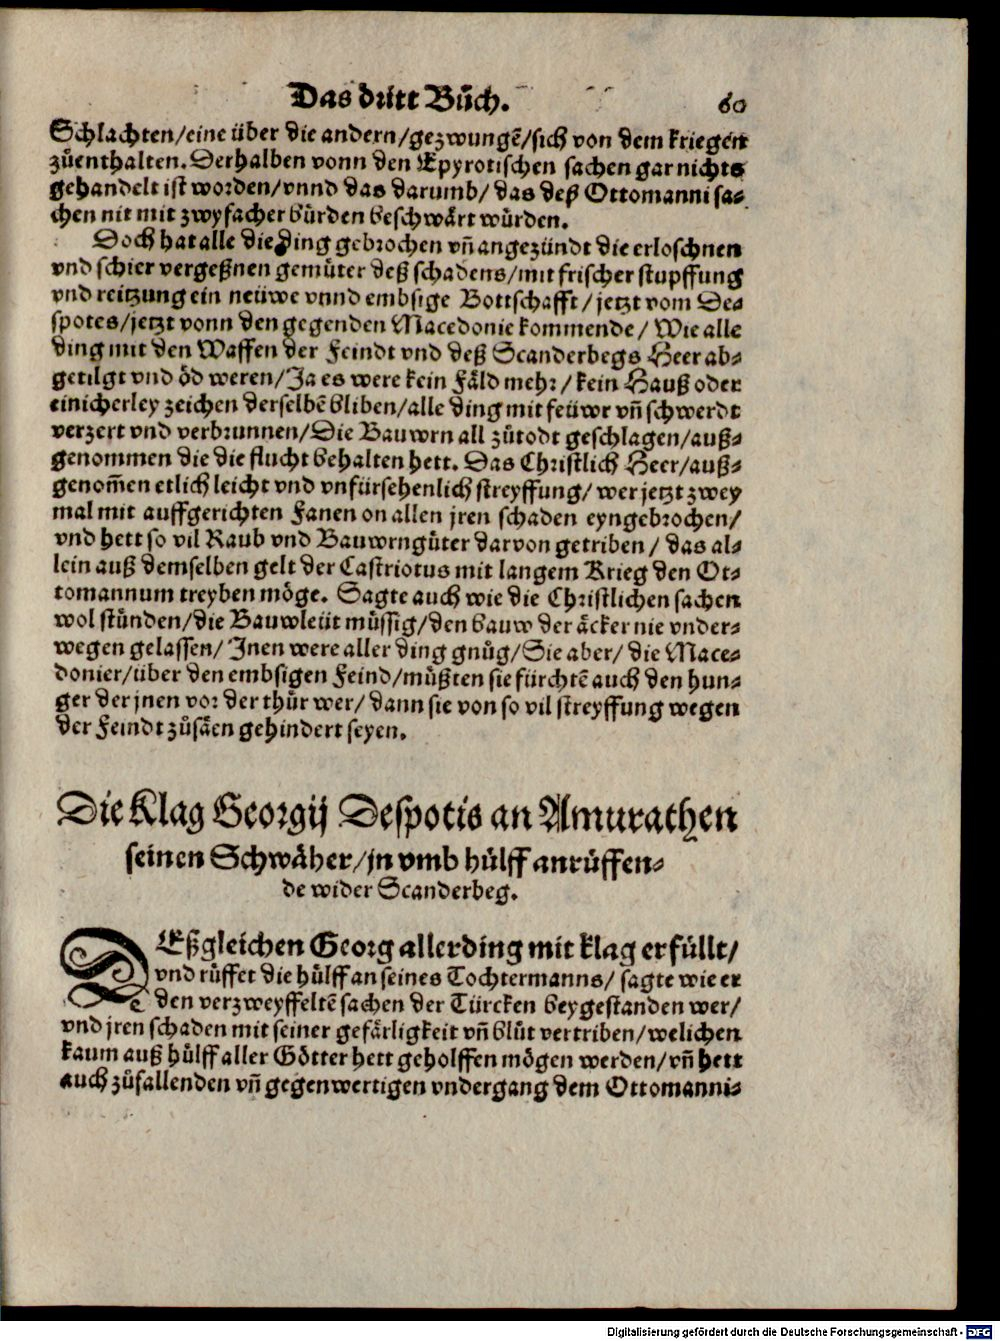 Das dritt Bůch. 60
Schlachten/eine über die andern/gezwungẽ/sich von dem kriegen
zůenthalten. Derhalben vonn den Epyrotischen sachen gar nichts
gehandelt ist worden/vnnd das darumb/ das deß Ottomanni sa-
chen nit mit zwyfacher bürden beschwärt würden.
Doch hat alle die ding gebrochen vñ angezündt die erloschnen
vnd schier vergeßnen gemüter deß schadens/mit frischer stupffung
vnd reitzung ein neüwe vnnd embsige Bottschafft/ jetzt vom De-
spotes/jetzt vonn den gegenden Macedonie kommende/ Wie alle
ding mit den Waffen der Feindt vnd deß Scanderbegs Heer ab-
getilgt vnd öd weren/Ja es were kein Fäld mehr/kein Hauß oder
einicherley zeichen derselbẽ bliben/alle ding mit feüwr vñ schwerdt
verzert vnd verbrunnen/Die Bauwrn all zůtodt geschlagen/auß-
genommen die die flucht behalten hett. Das Christlich Heer/auß-
genom̃en etlich leicht vnd vnfürsehenlich streyffung/ wer jetzt zwey
mal mit auffgerichten Fanen on allen jren schaden eyngebrochen/
vnd hett so vil Raub vnd Bauwrngüter darvon getriben/ das al-
lein auß demselben gelt der Castriotus mit langem Krieg den Ot-
tomannum treyben möge. Sagte auch wie die Christlichen sachen
wol stünden/die Bauwleüt müssig/den bauw der äcker nie vnder-
wegen gelassen/ Inen were aller ding gnůg/Sie aber/ die Mace-
donier/über den embsigen Feind/müßten sie fürchtẽ auch den hun-
ger der jnen vor der thür wer/ dann sie von so vil streyffung wegen
der Feindt zůsäen gehindert seyen.
Die Klag Georgij Despotis an Amurathen
seinen Schwäher/jn vmb hülff anrüffen-
de wider Scanderbeg.
DEßgleichen Georg allerding mit klag erfüllt/
vnd rüffet die hülff an seines Tochtermanns/ sagte wie er
den verzweyffeltẽ sachen der Türcken beygestanden wer/
vnd jren schaden mit seiner gefärligkeit vñ blůt vertriben/welichen
kaum auß hülff aller Götter hett geholffen mögen werden/vñ hett
auch zůfallenden vñ gegenwertigen vndergang dem Ottomanni-
Digitalisierung gefördert durch die Deutsche Forschungsgemeinschaft - DFG